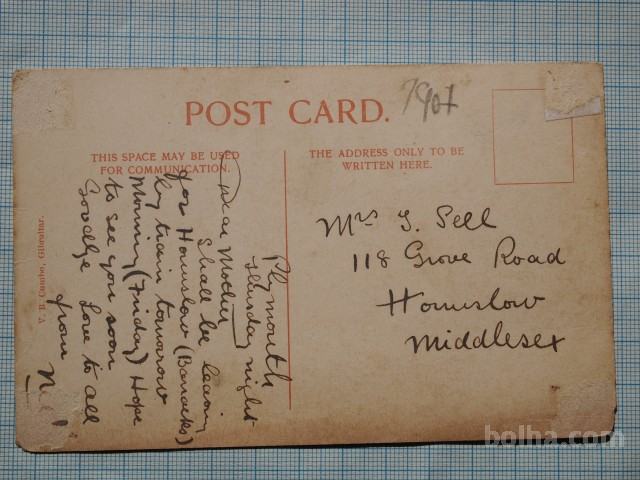 POST CARD.
1907
THIS SPACE MAY BE USED
FOR COMMUNICATION.
THE ADDRESS ONLY TO BE
WRITTEN HERE.
V. B. Cumbo, Gibraltar.
Plymouth
Thursday night
Dear Mother
Shall be leaving
for Hounslow (Barracks)
by train tomorrow
Morning (Friday) Hope
to see you soon
Goodbye Love to all
from
Mrs Pell
118 Grove Road
Hounslow
Middlesex
bolha.com